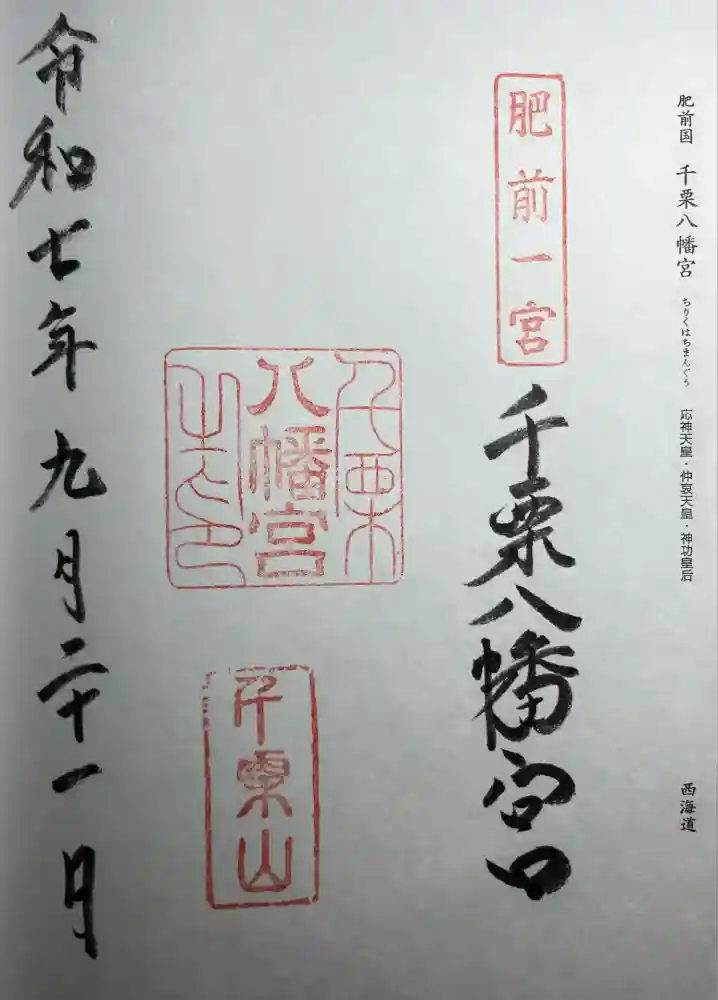 肥前国 千栗八幡宮 ちりくはちまんぐう 応神天皇・仲哀天皇・神功皇后 西海道
肥前一宮
千栗八幡宮
千栗
八幡宮
千栗山
令和七年九月二十一日